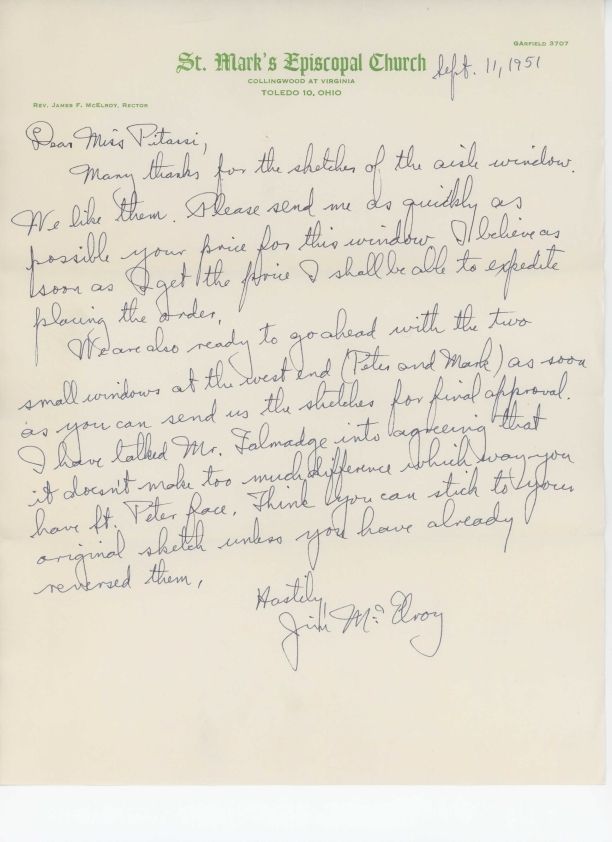 GARFIELD 3707
St. Mark's Episcopal Church
Sept. 11, 1951
COLLINGWOOD AT VIRGINIA
TOLEDO 10, OHIO
REV. JAMES F. MCELROY, RECTOR
Dear Miss Pitassi,
Many thanks for the sketches of the aisle window.
We like them. Please send me as quickly as
possible your price for this window. I believe as
soon as I get the price I shall be able to expedite
placing the order.
We are also ready to go ahead with the two
small windows at the west end (Peter and Mark) as soon
as you can send us the sketches for final approval.
I have talked Mr. Talmadge into agreeing that
it doesn't make too much difference which way you
have St. Peter face. Think you can stick to your
original sketch unless you have already
reversed them.
Hastily,
Jim McElroy